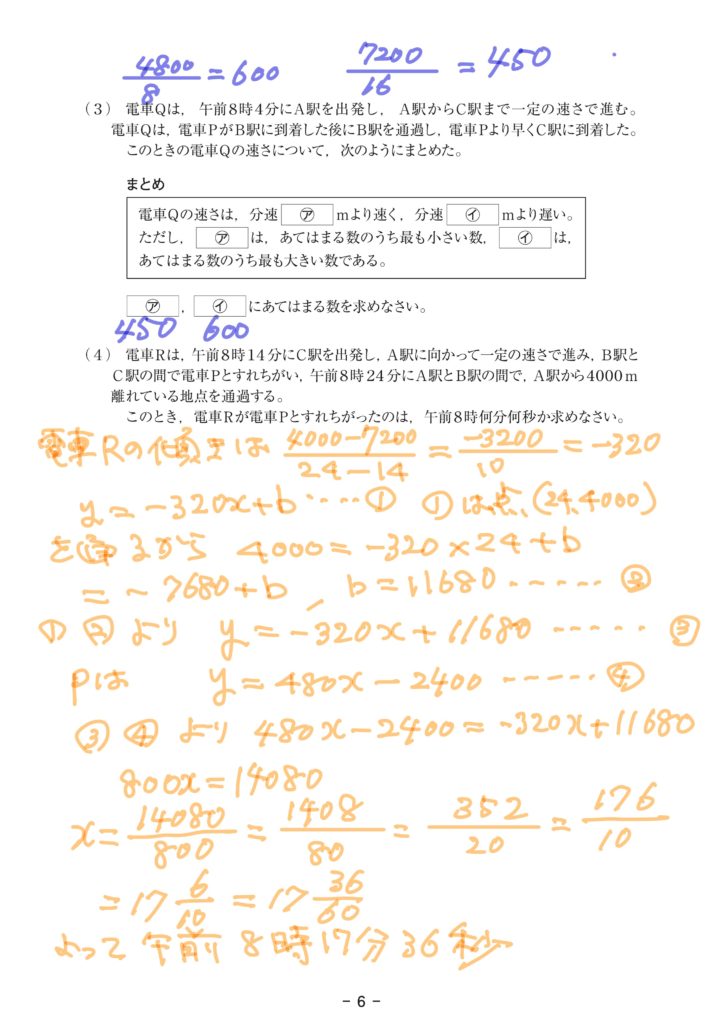 4800/8 = 600　7200/16 = 450
（３） 電車Qは，午前8時4分にA駅を出発し，A駅からC駅まで一定の速さで進む。
電車Qは，電車PがB駅に到着した後にB駅を通過し，電車Pより早くC駅に到着した。
このときの電車Qの速さについて，次のようにまとめた。
まとめ
電車Qの速さは，分速 ㋐ mより速く，分速 ㋑ mより遅い。
ただし， ㋐ は，あてはまる数のうち最も小さい数， ㋑ は，
あてはまる数のうち最も大きい数である。
㋐ ， ㋑ にあてはまる数を求めなさい。
450　600
（４） 電車Rは，午前8時14分にC駅を出発し，A駅に向かって一定の速さで進み，B駅と
C駅の間で電車Pとすれちがい，午前8時24分にA駅とB駅の間で，A駅から4000m
離れている地点を通過する。
このとき，電車Rが電車Pとすれちがったのは，午前8時何分何秒か求めなさい。
電車Rの傾きは (4000−7200)/(24−14) = −3200/10 = −320
y = −320x+b ‥‥‥① ①は点(24,4000)
を通るから 4000 = −320×24+b
= −7680+b , b = 11680 ‥‥‥②
①②より y = −320x+11680 ‥‥‥③
Pは y = 480x−2400 ‥‥‥④
③④より 480x−2400 = −320x+11680
800x = 14080
x = 14080/800 = 1408/80 = 352/20 = 176/10
= 17 6/10 = 17 36/60
よって 午前8時17分36秒
− 6 −